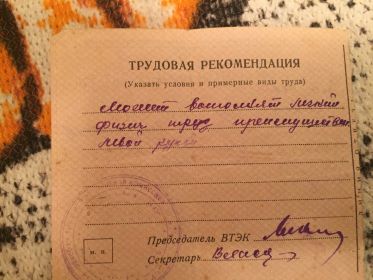 ТРУДОВАЯ РЕКОМЕНДАЦИЯ
(Указать условия и примерные виды труда)
Может выполнят легкий
физич труд преимуществен
левой рукой
м. п.
Председатель ВТЭК
Секретарь